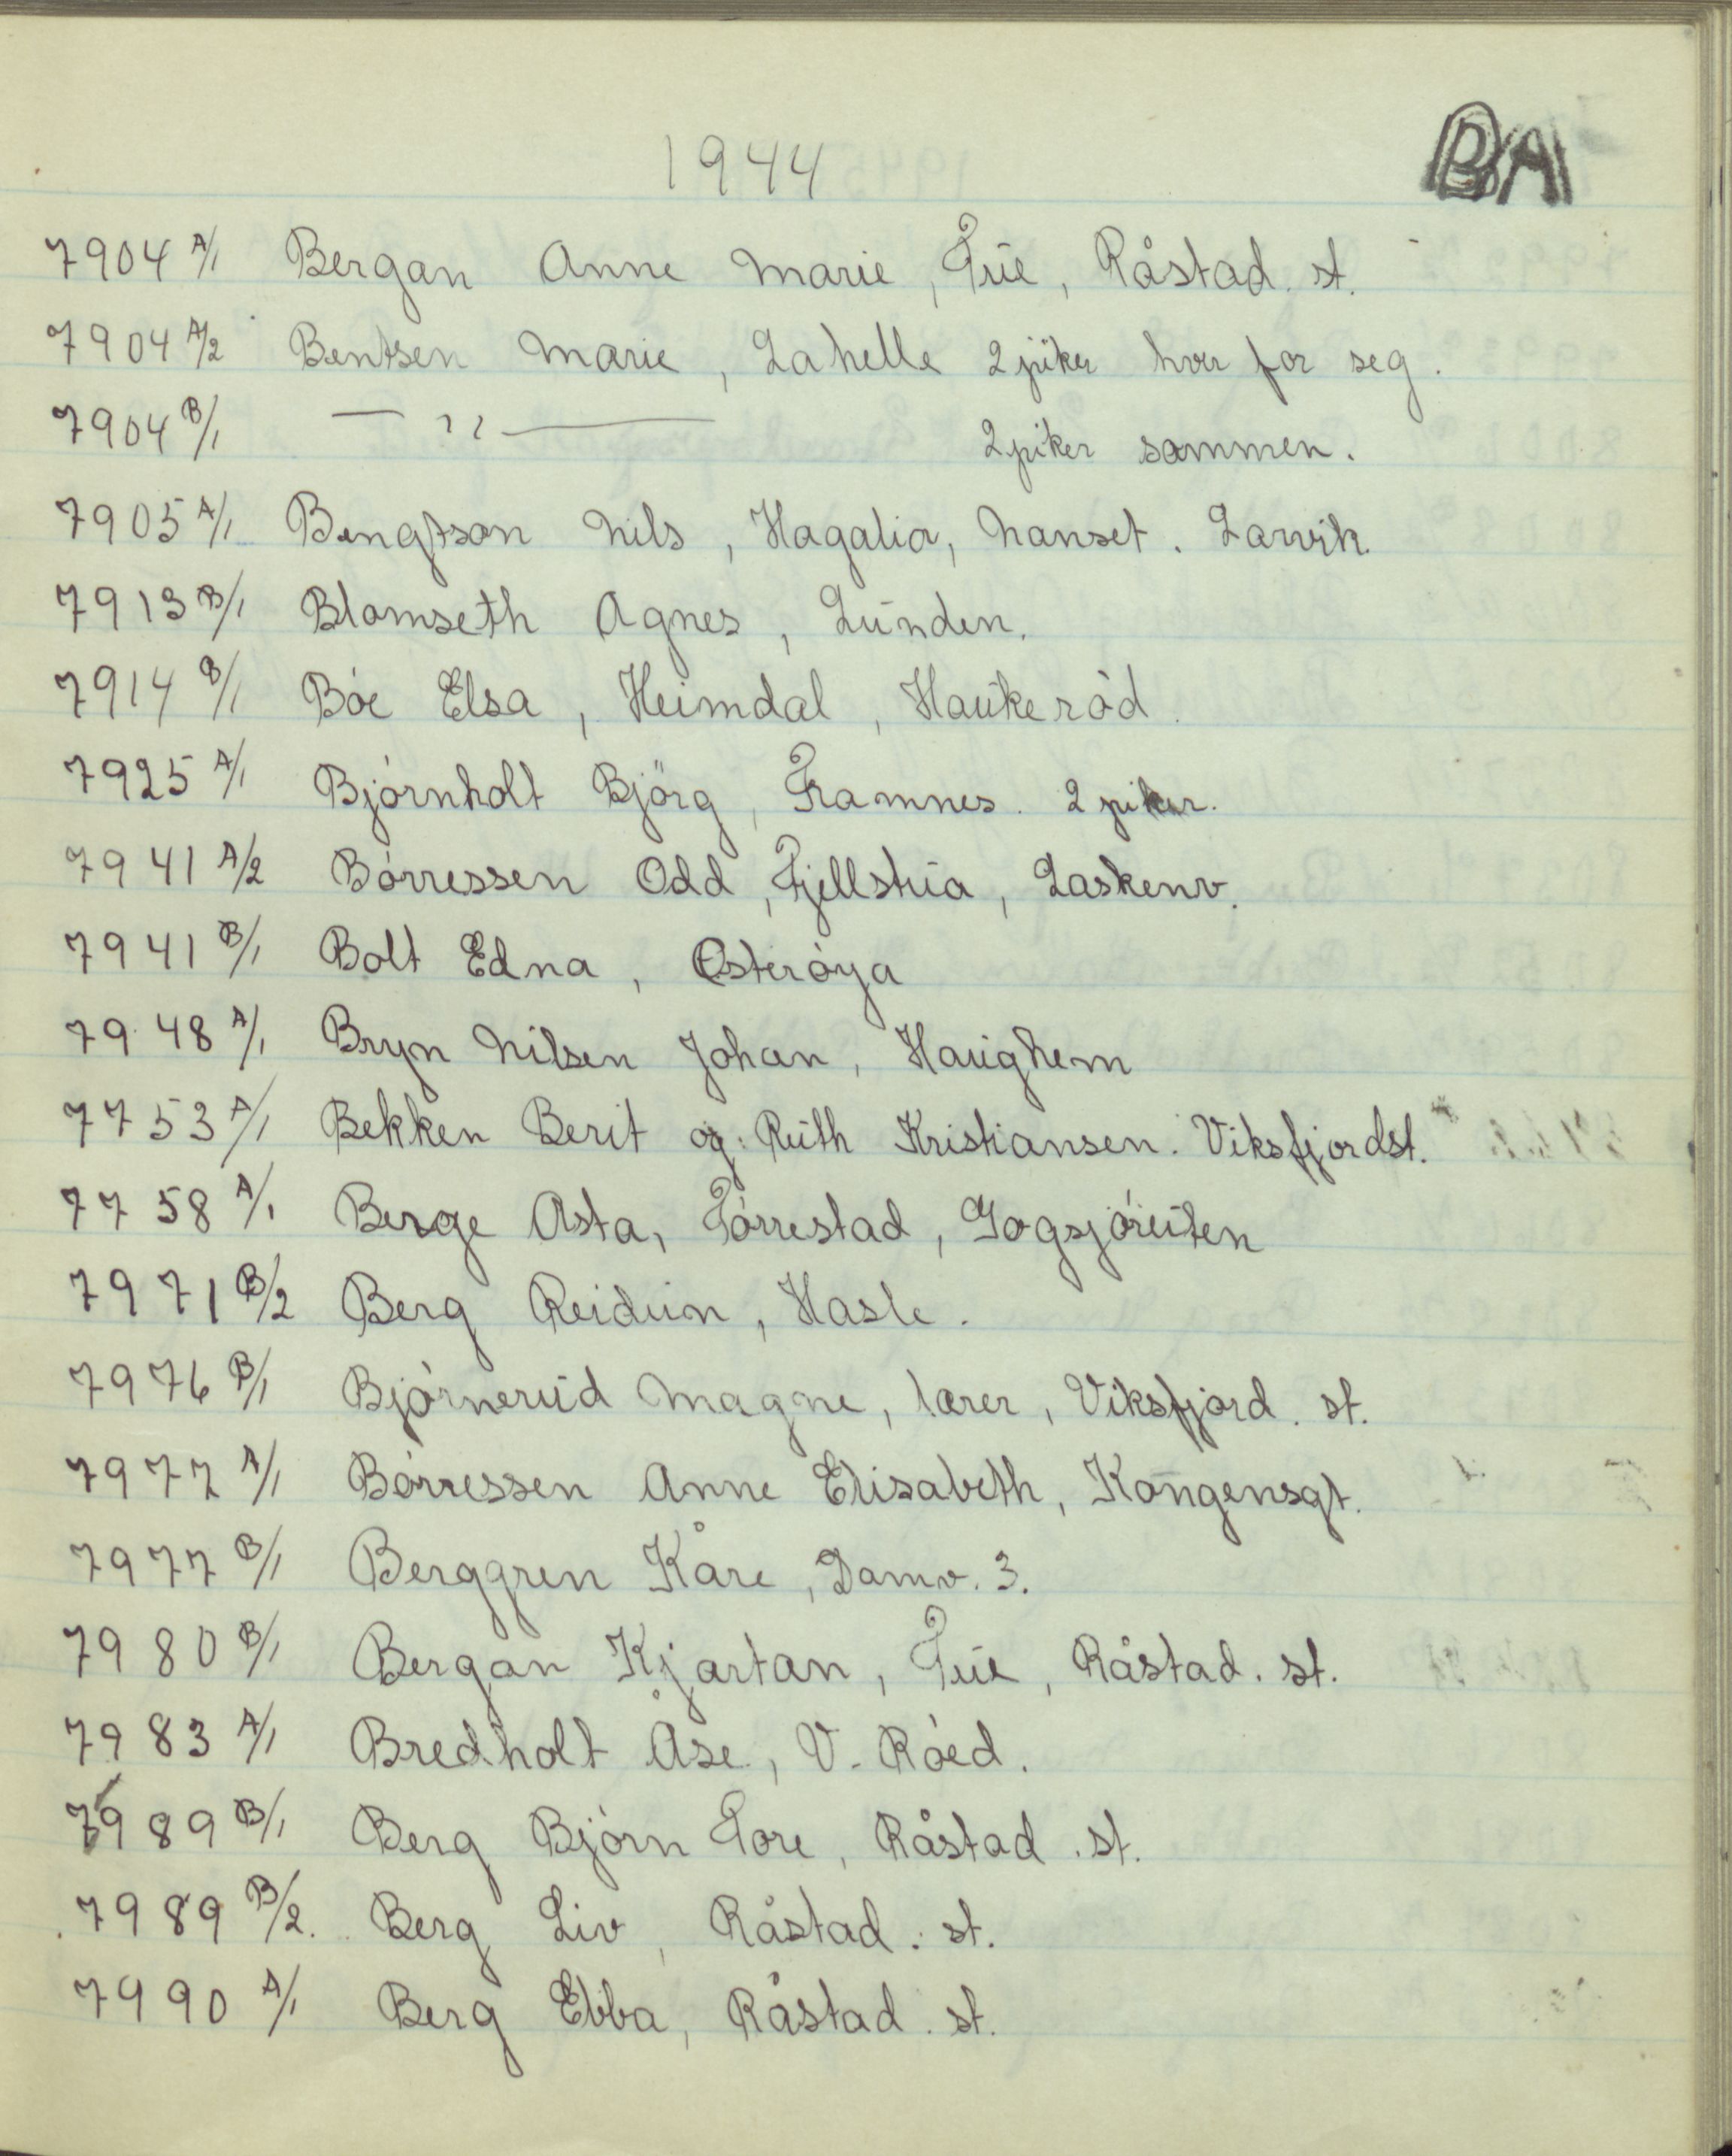 BA
1944
7904 A/1 Bergan Anne Marie, Tue, Råstad. st.
7904 A/2 Bentsen Marie, Lahelle 2 piker hver for seg.
7904 B/1 — " — 2 piker sammen.
7905 A/1 Bengtson Nils, Hagalia, Nanset. Larvik.
7913 B/1 Blomseth Agnes, Lunden.
7914 B/1 Bóe Elsa, Heimdal, Haukeród.
7925 A/1 Bjórnholt Björg, Framnes. 2 piker.
7941 A/2 Bórressen Odd, Fjellstua, Laskenv.
7941 B/1 Bolt Edna, Osteróya
7948 A/1 Bryn Nilsen Johan, Haughem
7753 A/1 Bekken Berit og Ruth Kristiansen. Viksfjordst.
7758 A/1 Berge Asta, Tórrestad, Gogsjóruten
7971 B/2 Berg Reidun, Hasle.
7976 B/1 Bjórnerud Magne, lærer, Viksfjord. st.
7977 A/1 Bórressen Anne Elisabeth, Kongensgt.
7977 B/1 Berggren Kåre, Damv. 3.
7980 B/1 Bergan Kjartan, Tue, Råstad. st.
7983 A/1 Bredholt Åse, V. Róed.
7989 B/1 Berg Bjórn Tore, Råstad. st.
7989 B/2. Berg Liv, Råstad. st.
7990 A/1 Berg Ebba, Råstad. st.